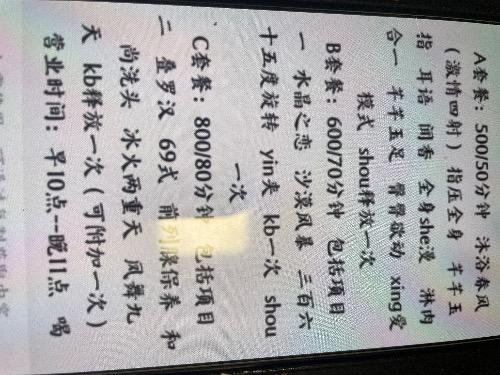 A套餐：500/50分钟 沐浴春风
（激情四射）指压全身 芊芊玉
指 耳语 闻香 全身she漫 淋肉
合一 芊芊玉足 臀臀欲动 xing爱
模式 shou释放一次
B套餐：600/70分钟 包括项目
一 水晶之恋 沙漠风暴 三百六
十五度旋转 yin夹 kb一次 shou
一次
C套餐：800/80分钟 包括项目
二 叠罗汉 69式 前列腺保养 和
尚洗头 冰火两重天 凤舞九
天 kb释放一次（可附加一次）
营业时间：早10点--晚11点 喝